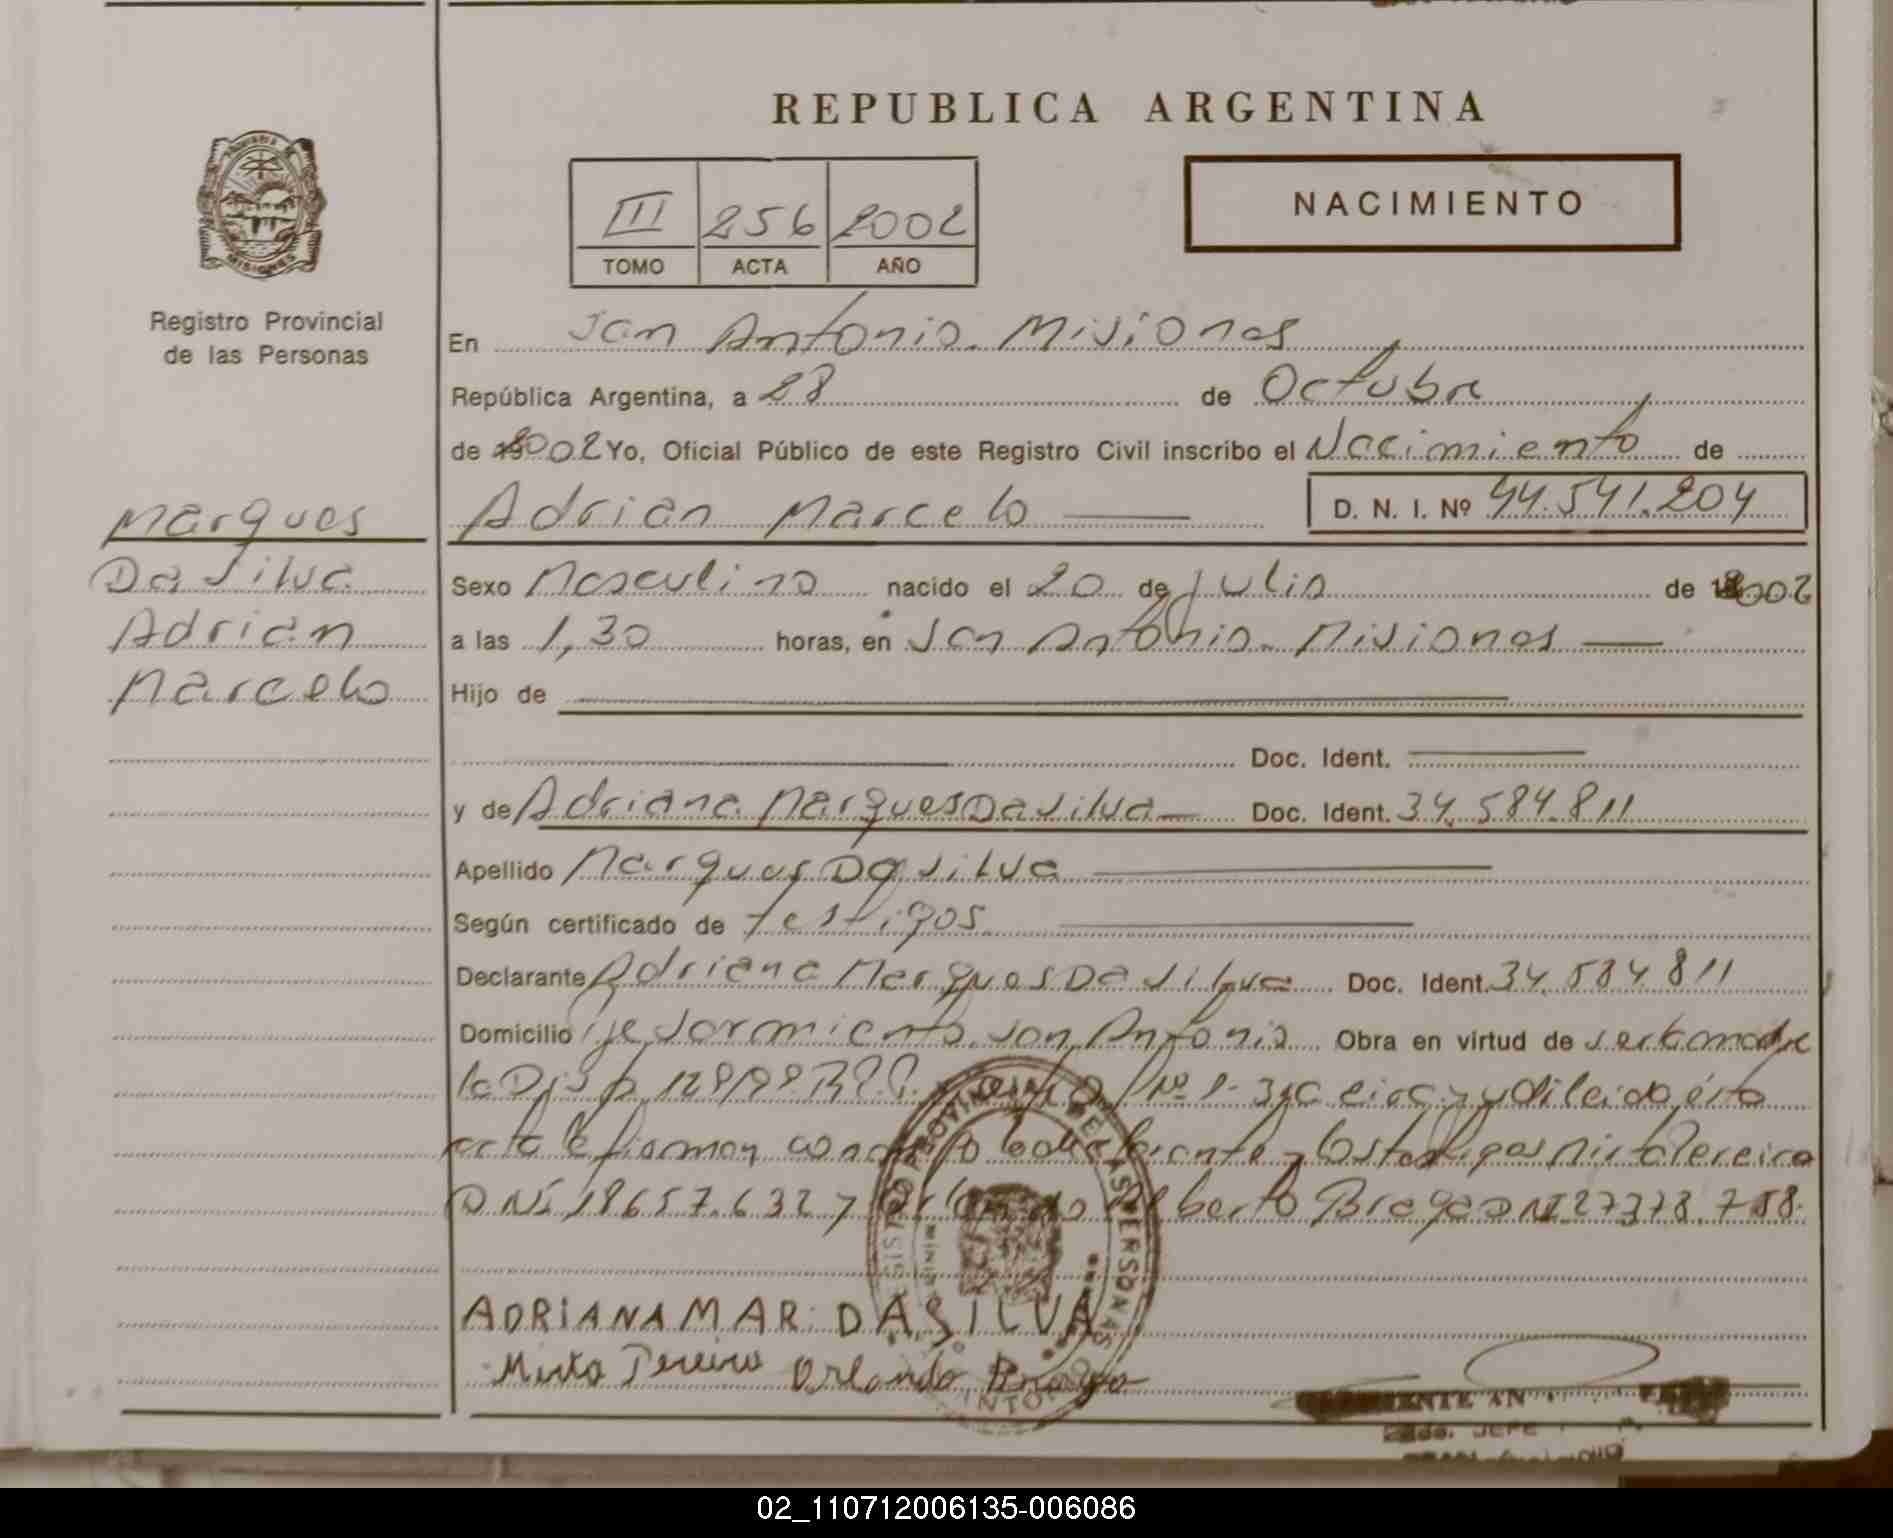 REPUBLICA ARGENTINA
NACIMIENTO
III 256 2002
TOMO ACTA AÑO
Registro Provincial
de las Personas
Marques
Da Silva
Adrian
Marcelo
En San Antonio. Misiones
República Argentina, a 28 de Octubre
de 2002 Yo, Oficial Público de este Registro Civil inscribo el Nacimiento de
Adrian Marcelo D. N. I. Nº 44.541.204
Sexo Masculino nacido el 20 de Julio de 2002
a las 1,30 horas, en San Antonio. Misiones
Hijo de
Doc. Ident.
y de Adriana Marques Da Silva Doc. Ident. 34.584.811
Apellido Marques Da Silva
Según certificado de testigos
Declarante Adriana Marques Da Silva Doc. Ident. 34.584.811
Domicilio Sarmiento. San Antonio Obra en virtud de ser la madre
la Disp. Nº ésta
acta firman y los testigos Mirta Pereira
DNI 18657.632 y Orlando Alberto Braga DNI 27378.788.
ADRIANA MAR. DA SILVA
Mirta Pereira Orlando Braga
02_110712006135-006086